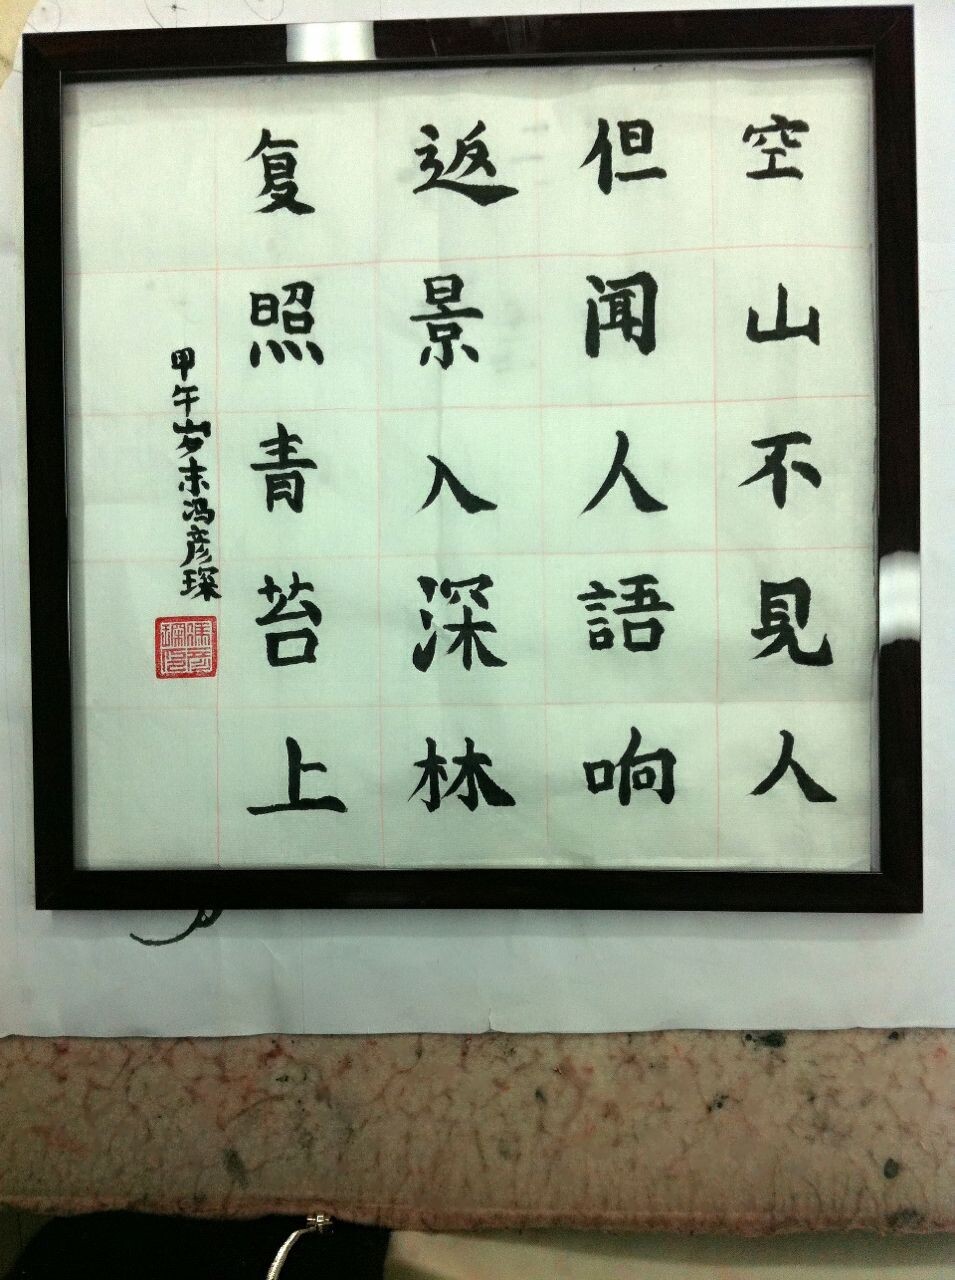 空山不見人
但闻人語响
返景入深林
复照青苔上
甲午岁末冯彦琛